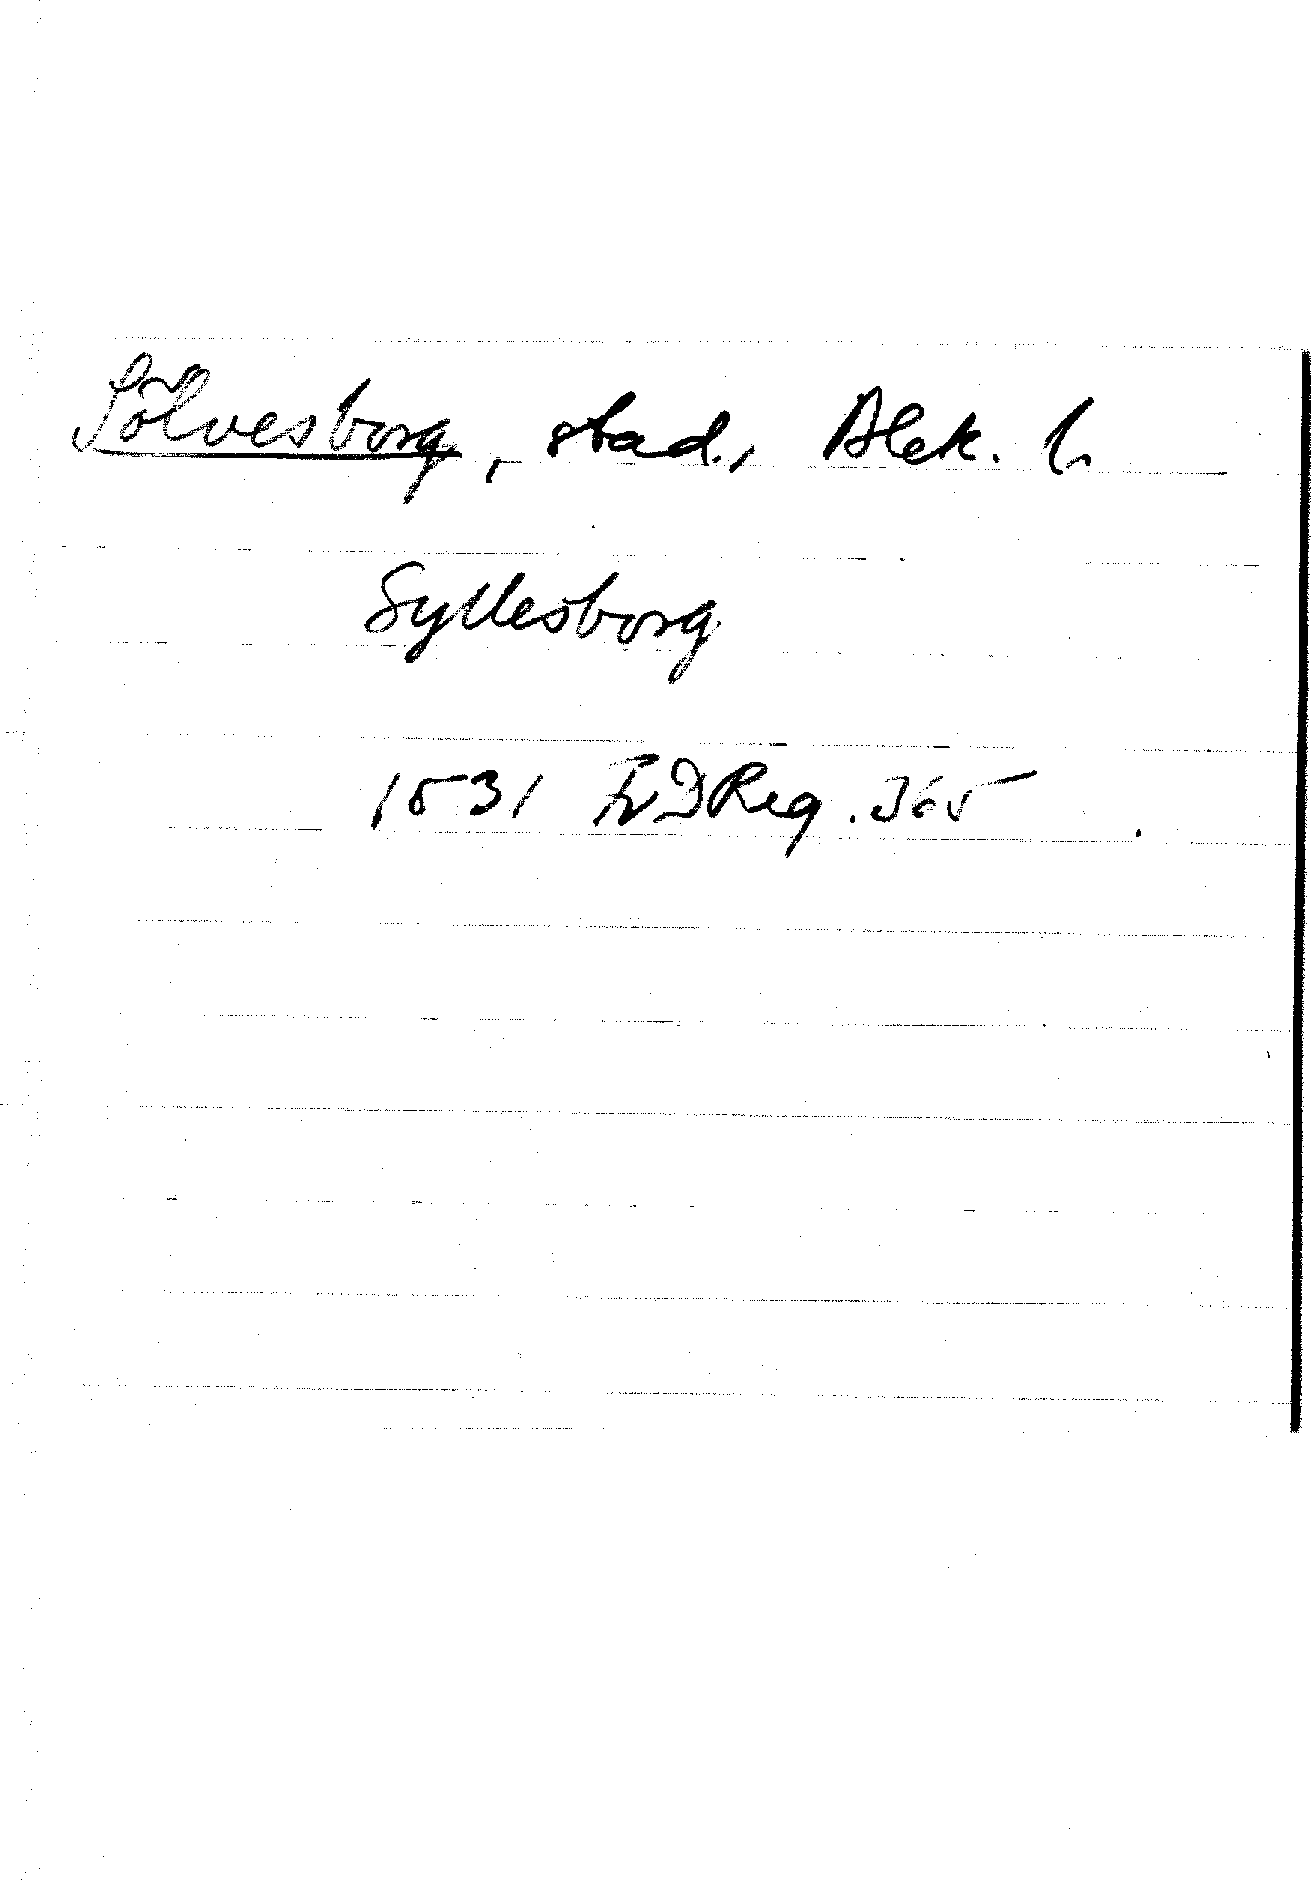 Sölvesborg, stad., Blek. l.
Syllesborg
1531 FrDReg. 365